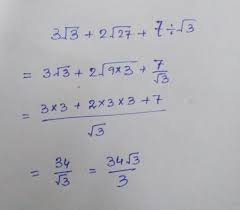 3√3 + 2√27 + 7÷√3
= 3√3 + 2√(9×3) + 7/√3
= (3×3 + 2×3×3 + 7)/√3
= 34/√3 = 34√3/3